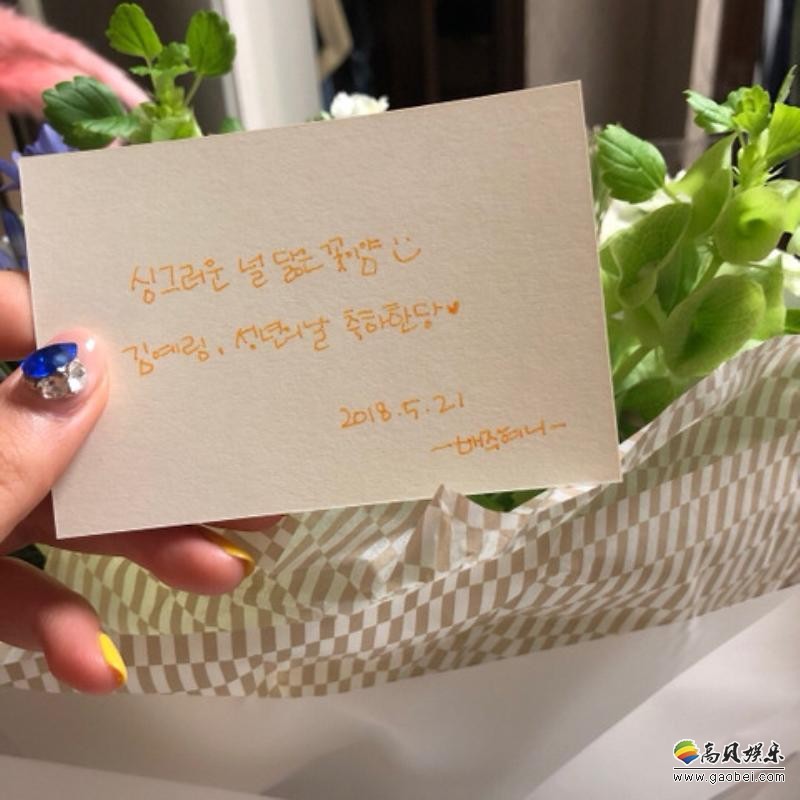 싱그러운 널 닮은 꽃이양 :)
김예림, 성년의날 축하한당♥
2018.5.21
~배주혀니~
高贝娱乐
www.gaobei.com